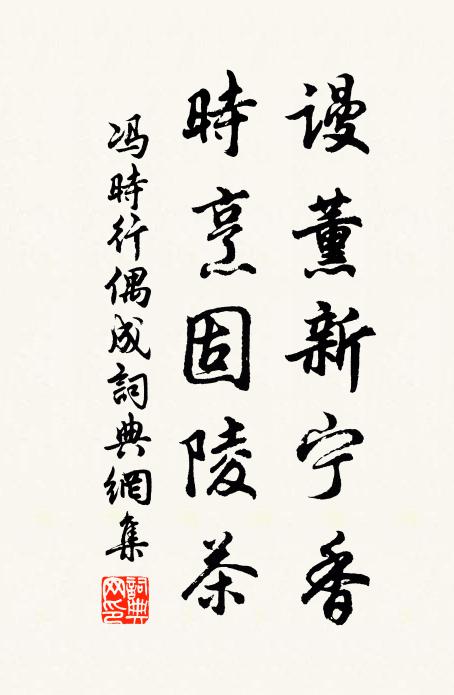 谩薰新宁香
時烹固陵茶
冯時行偶成詞典網集
詞典网印